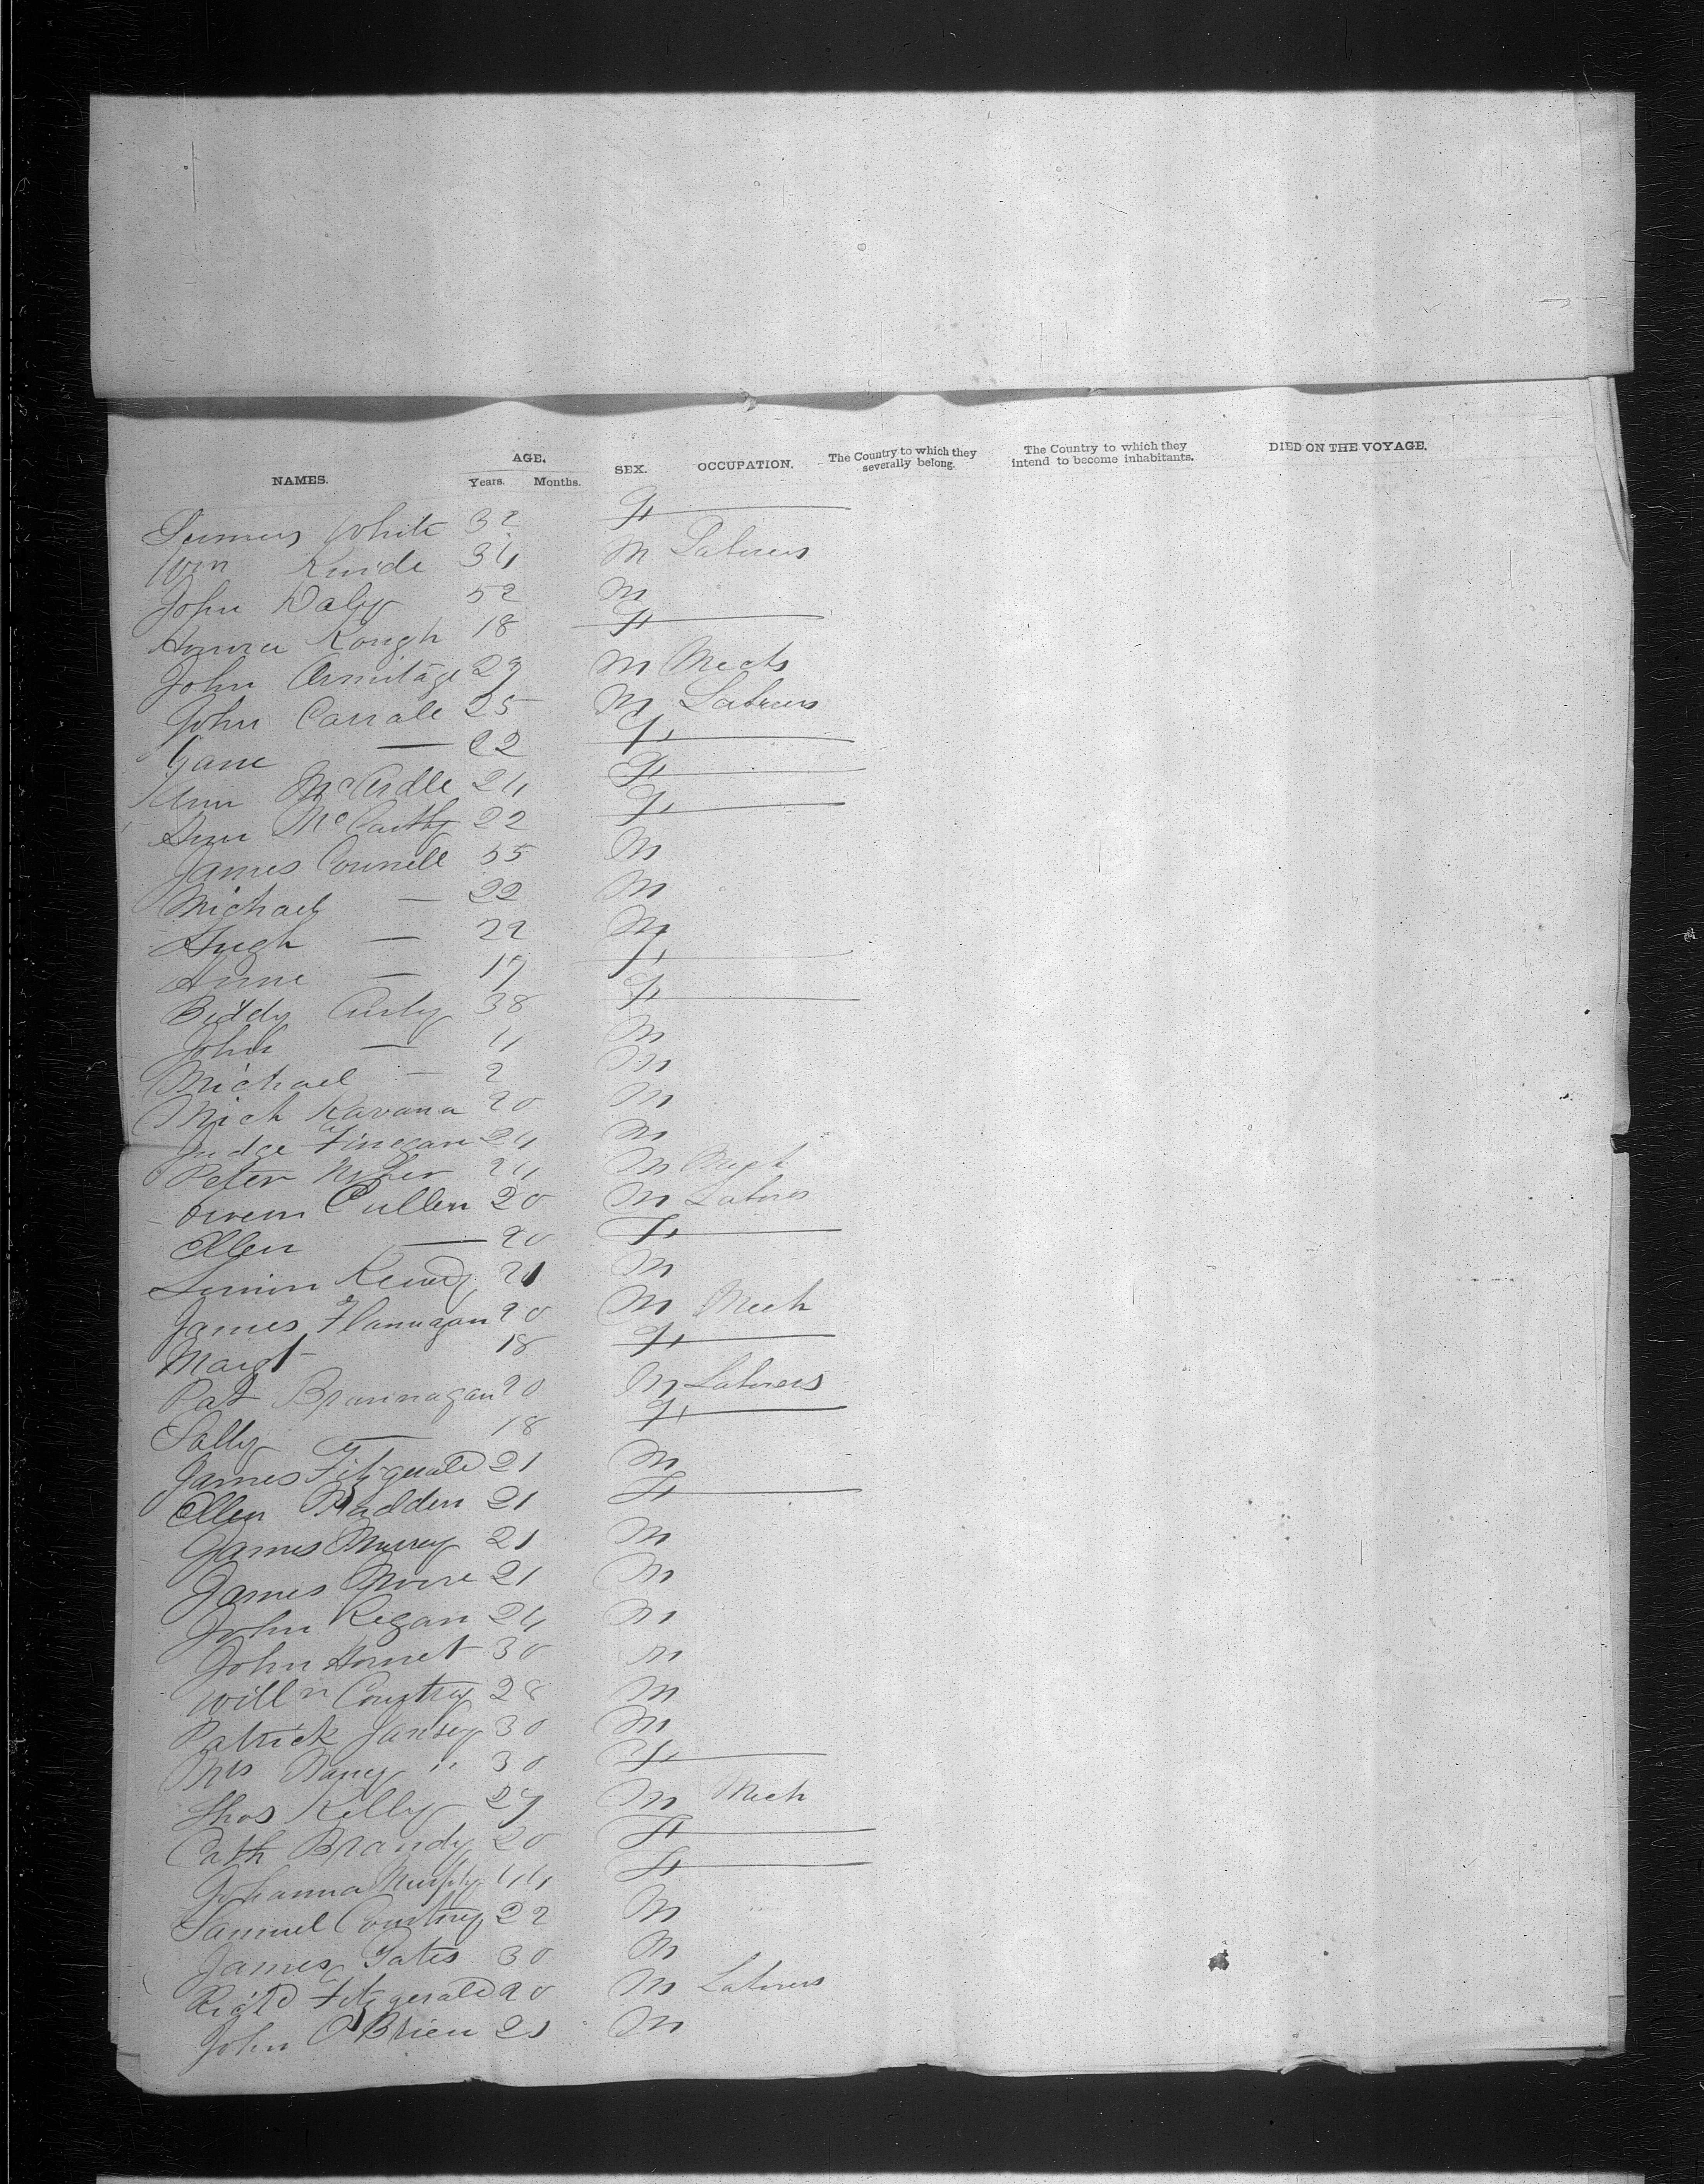 NAMES. AGE. Years. Months. SEX. OCCUPATION. The Country to which they severally belong. The Country to which they intend to become inhabitants. DIED ON THE VOYAGE.
White 32 F
Wm Kinde 34 M Laborers
John Daly 52 M
Honora Keough 18 F
John Armitage 29 M Mects
John Carrale 25 M Laborers
Jane — 22 F
Ann McArdle 24 F
Ann McCarthy 22 F
James Connell 55 M
Michael — 22 M
Hugh — 22 M
Anne — 17 F
Biddy Curly 38 F
John — 4 M
Michael — 2 M
Mich Kavana 20 M
Judge Finegan 24 M
Peter 24 M Mect
Owen Cullen 20 M Labores
Ellen — 20 F
Simon Kenedy 21 M
James Flannagan 20 M Mech
Margt 18 F
Pat Brannagan 20 M Laborers
Sally — 18 F
James Fitzgerald 21 M
Ellen Madden 21 F
James Murray 21 M
James Moore 21 M
John Regan 24 M
John Hornet 30 M
Willm Courtny 28 M
Patrick Jansey 30 M
Mrs Nancy " 30 F
Thos Kelly 27 M Mech
Cath Brandy 20 F
Johanna Murphy 44 F
Samuel Courtny 22 M
James Yates 30 M
Richd Fitzgerald 20 M Laborers
John O'Brien 21 M